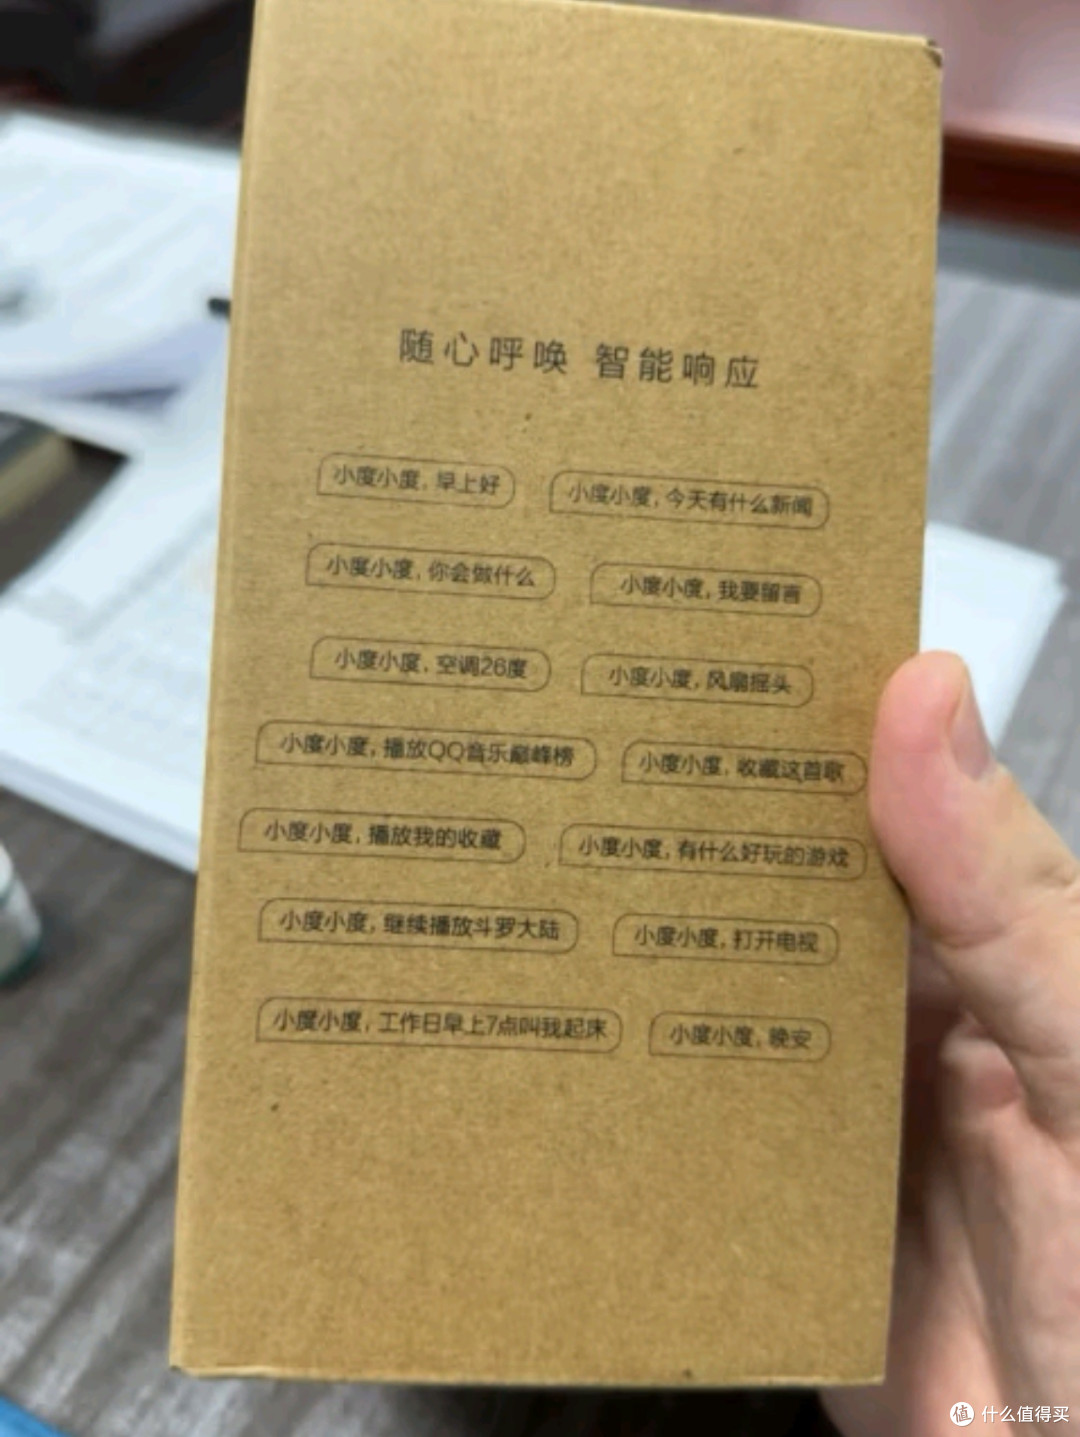 随心呼唤 智能响应
小度小度，早上好
小度小度，今天有什么新闻
小度小度，你会做什么
小度小度，我要留言
小度小度，空调26度
小度小度，风扇摇头
小度小度，播放QQ音乐巅峰榜
小度小度，收藏这首歌
小度小度，播放我的收藏
小度小度，有什么好玩的游戏
小度小度，继续播放斗罗大陆
小度小度，打开电视
小度小度，工作日早上7点叫我起床
小度小度，晚安
值 什么值得买